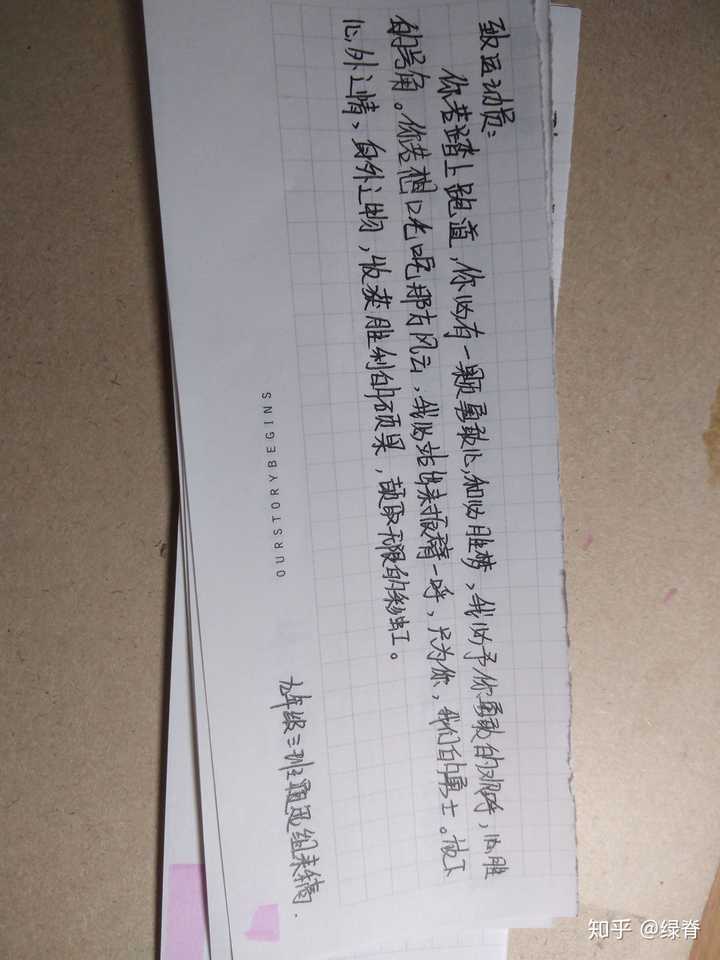 致运动员：
你若踏上跑道，你必有一颗勇敢心，和必胜梦，我必予你勇敢的欢呼，必胜
的号角。你若想叱咤那方风云，我必站出来振臂一呼，只为你，我们的勇士。放下
心外之情，身外之物，收获胜利的硕果，颉取无限的彩虹。
九年级三班通迅组来稿.
OURSTORYBEGINS
知乎 @绿脊